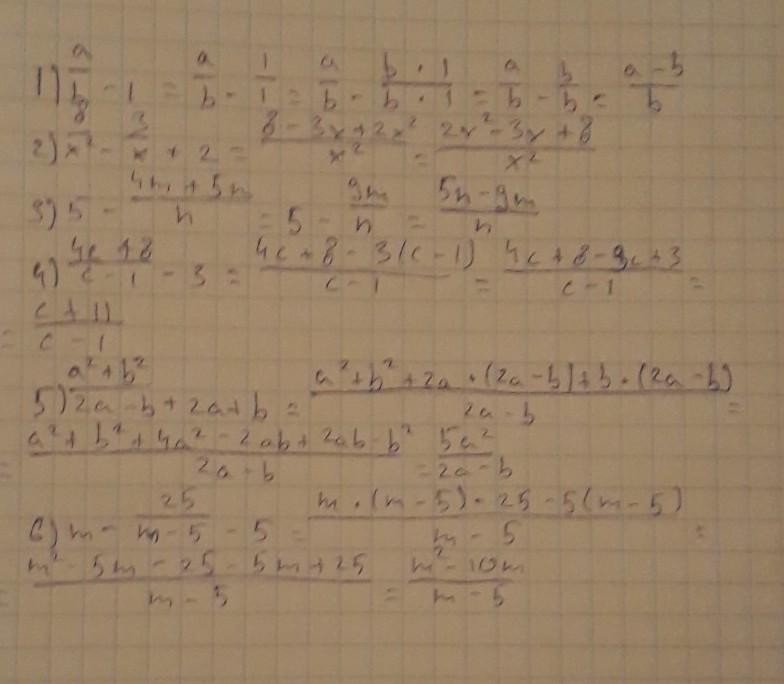 1) a/b - 1 = a/b - 1/1 = a/b - b·1/b·1 = a/b - b/b = a-b/b
2) 8/x² - 3/x + 2 = 8-3x+2x²/x² = 2x²-3x+8/x²
3) 5 - 4m+5n/n = 5 - 9m/n = 5n-9m/n
4) 4c+8/c-1 - 3 = 4c+8-3(c-1)/c-1 = 4c+8-3c+3/c-1 =
= c+11/c-1
5) a²+b²/2a-b + 2a+b = a²+b²+2a·(2a-b)+b·(2a-b)/2a-b =
= a²+b²+4a²-2ab+2ab-b²/2a-b = 5a²/2a-b
6) m - 25/m-5 - 5 = m·(m-5)-25-5(m-5)/m-5 =
= m²-5m-25-5m+25/m-5 = m²-10m/m-5